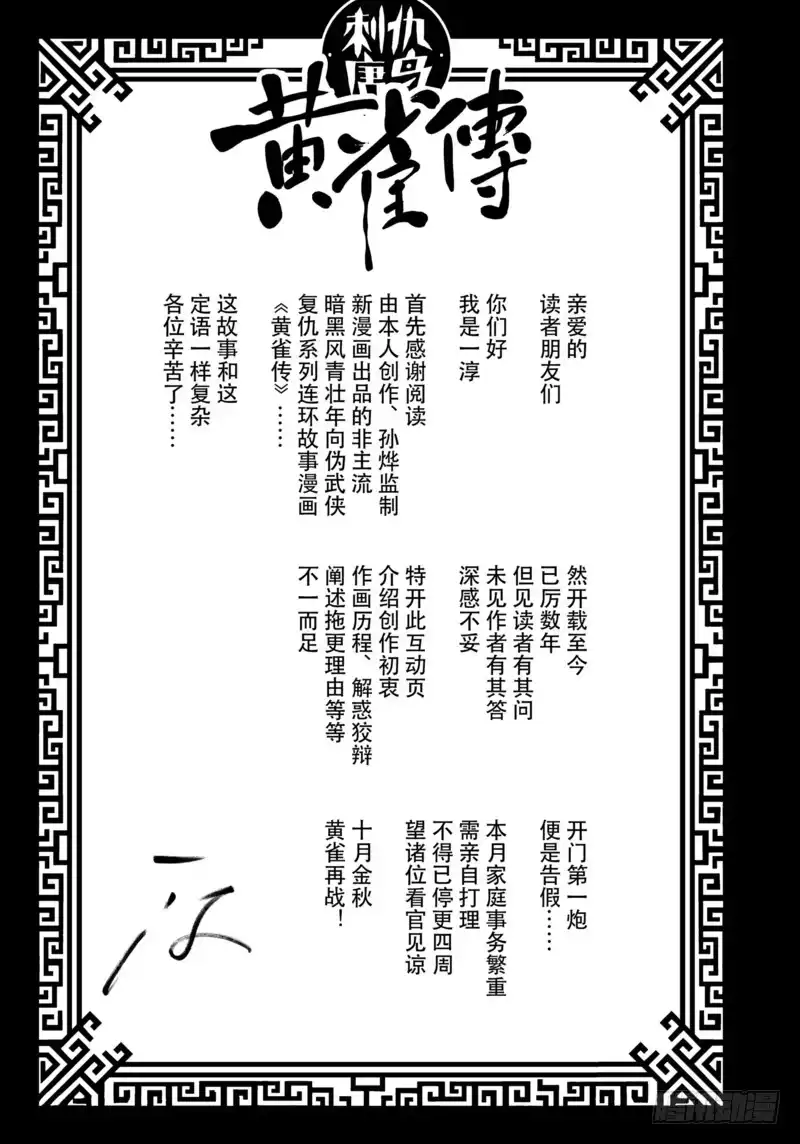 刺仇
黄雀傳
亲爱的
读者朋友们
你们好
我是一淳
首先感谢阅读
由本人创作、孙烨监制
新漫画出品的非主流
暗黑风青壮年向伪武侠
复仇系列连环故事漫画
《黄雀传》……
这故事和这
定语一样复杂
各位辛苦了……
然开载至今
已厉数年
但见读者有其问
未见作者有其答
深感不妥
特开此互动页
介绍创作初衷
作画历程、解惑狡辩
阐述拖更理由等等
不一而足
开门第一炮
便是告假……
本月家庭事务繁重
需亲自打理
不得已停更四周
望诸位看官见谅
十月金秋
黄雀再战！